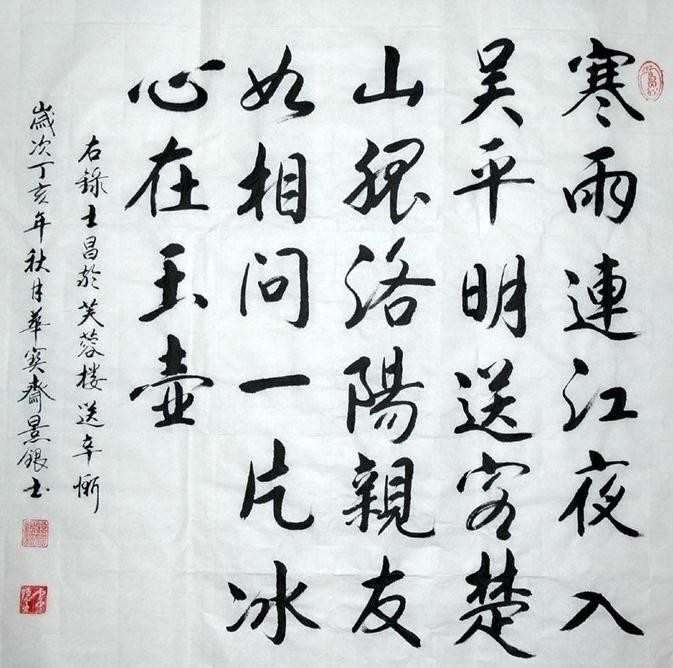 寒雨連江夜入
吴平明送客楚
山孤洛陽親友
如相问一片冰
心在玉壶
右録士昌於芙蓉楼送辛惭
歲次丁亥年秋月華寳齋景銀书